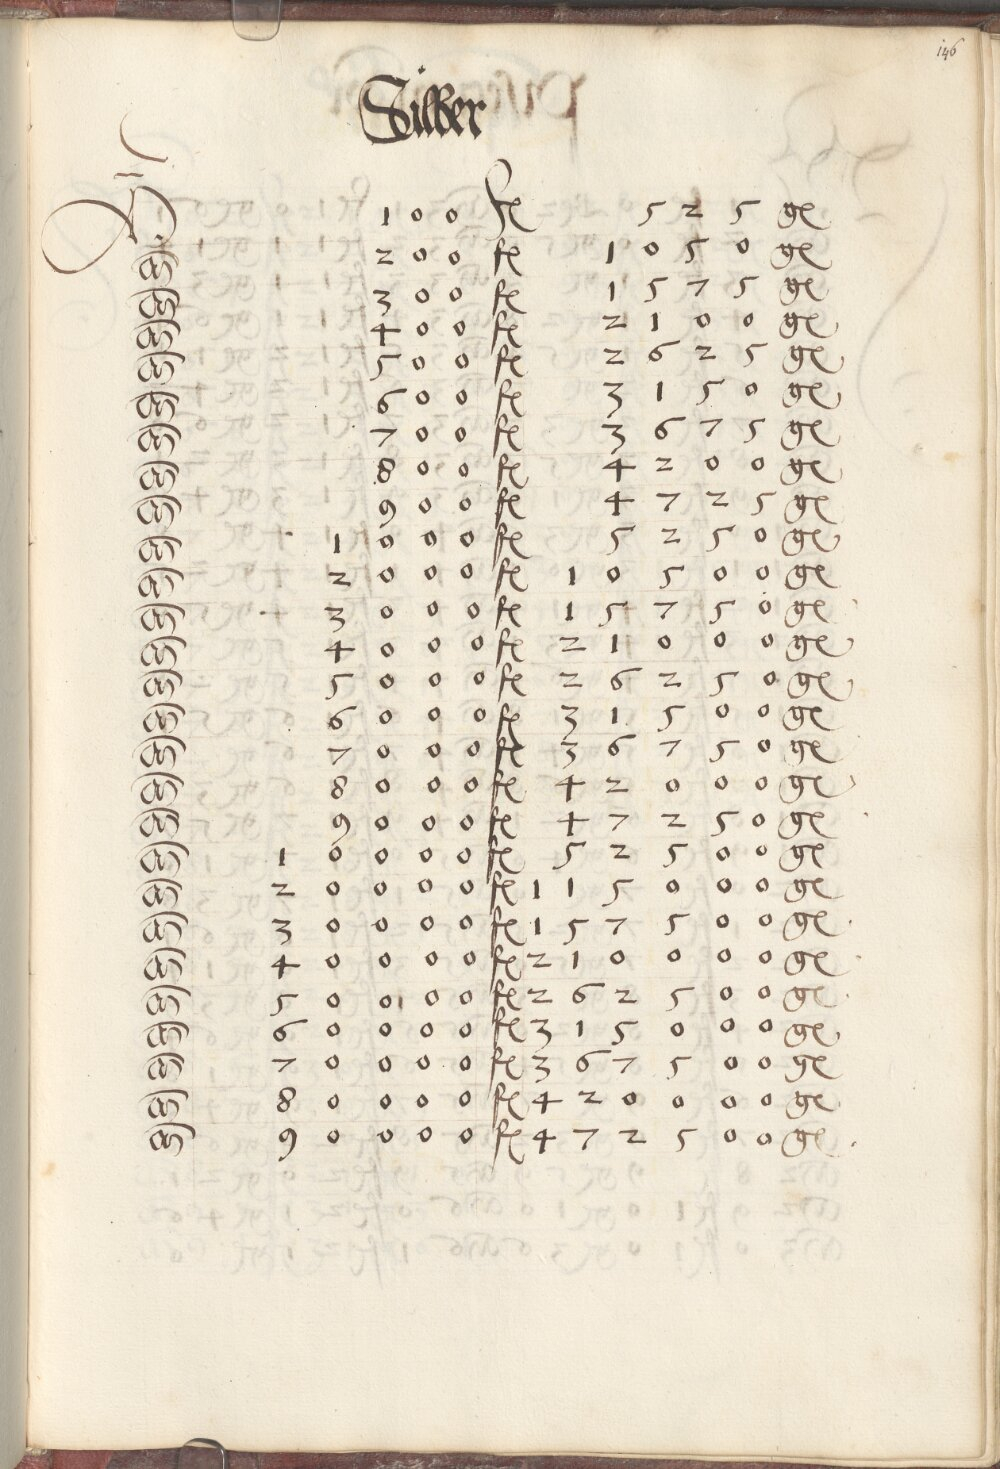 146
Silber
100 fl 525 gl
200 fl 1050 gl
300 fl 1575 gl
400 fl 2100 gl
500 fl 2625 gl
600 fl 3150 gl
700 fl 3675 gl
800 fl 4200 gl
900 fl 4725 gl
1000 fl 5250 gl
2000 fl 10500 gl
3000 fl 15750 gl
4000 fl 21000 gl
5000 fl 26250 gl
6000 fl 31500 gl
7000 fl 36750 gl
8000 fl 42000 gl
9000 fl 47250 gl
10000 fl 52500 gl
20000 fl 115000 gl
30000 fl 157500 gl
40000 fl 210000 gl
50000 fl 262500 gl
60000 fl 315000 gl
70000 fl 367500 gl
80000 fl 420000 gl
90000 fl 472500 gl